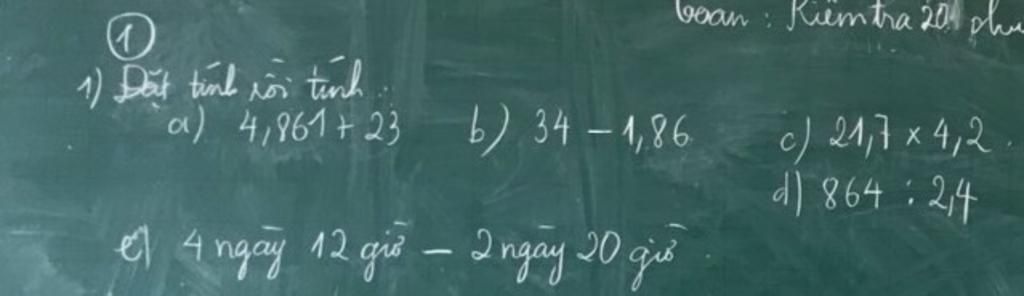 Toán : Kiểm tra 20 phú
①
1) Đặt tính rồi tính :
a) 4,861 + 23 b) 34 - 1,86 c) 21,7 × 4,2
d) 864 : 2,4
e) 4 ngày 12 giờ - 2 ngày 20 giờ